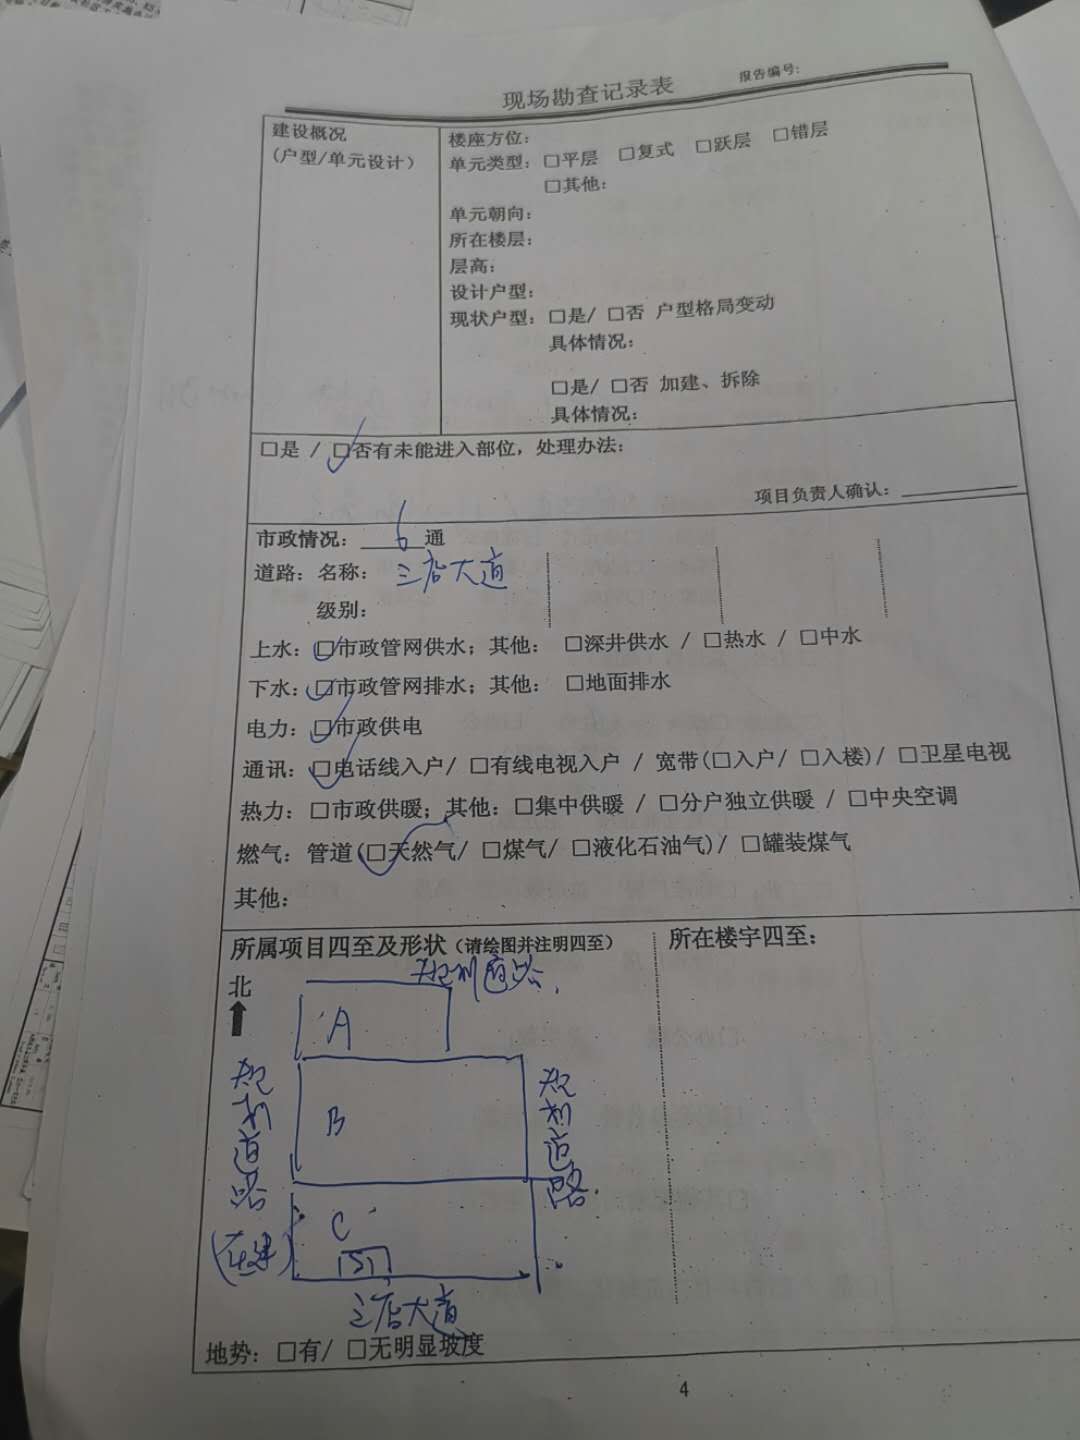 现场勘查记录表
报告编号:
建设概况
(户型/单元设计)
楼座方位:
单元类型: □平层 □复式 □跃层 □错层
□其他:
单元朝向:
所在楼层:
层高:
设计户型:
现状户型: □是/ □否 户型格局变动
具体情况:
□是/ □否 加建、拆除
具体情况:
□是 / ☑否有未能进入部位, 处理办法:
项目负责人确认:
市政情况: 6 通
道路: 名称: 三店大道
级别:
上水: ☑市政管网供水; 其他: □深井供水 / □热水 / □中水
下水: ☑市政管网排水; 其他: □地面排水
电力: ☑市政供电
通讯: ☑电话线入户/ □有线电视入户 / 宽带(□入户/ □入楼)/ □卫星电视
热力: □市政供暖; 其他: □集中供暖 / □分户独立供暖 / □中央空调
燃气: 管道(☑天然气/ □煤气/ □液化石油气)/ □罐装煤气
其他:
所属项目四至及形状(请绘图并注明四至)
所在楼宇四至:
规划道路
北
A
B
C
规划道路
(在建)
规划道路
三店大道
地势: □有/ □无明显坡度
4